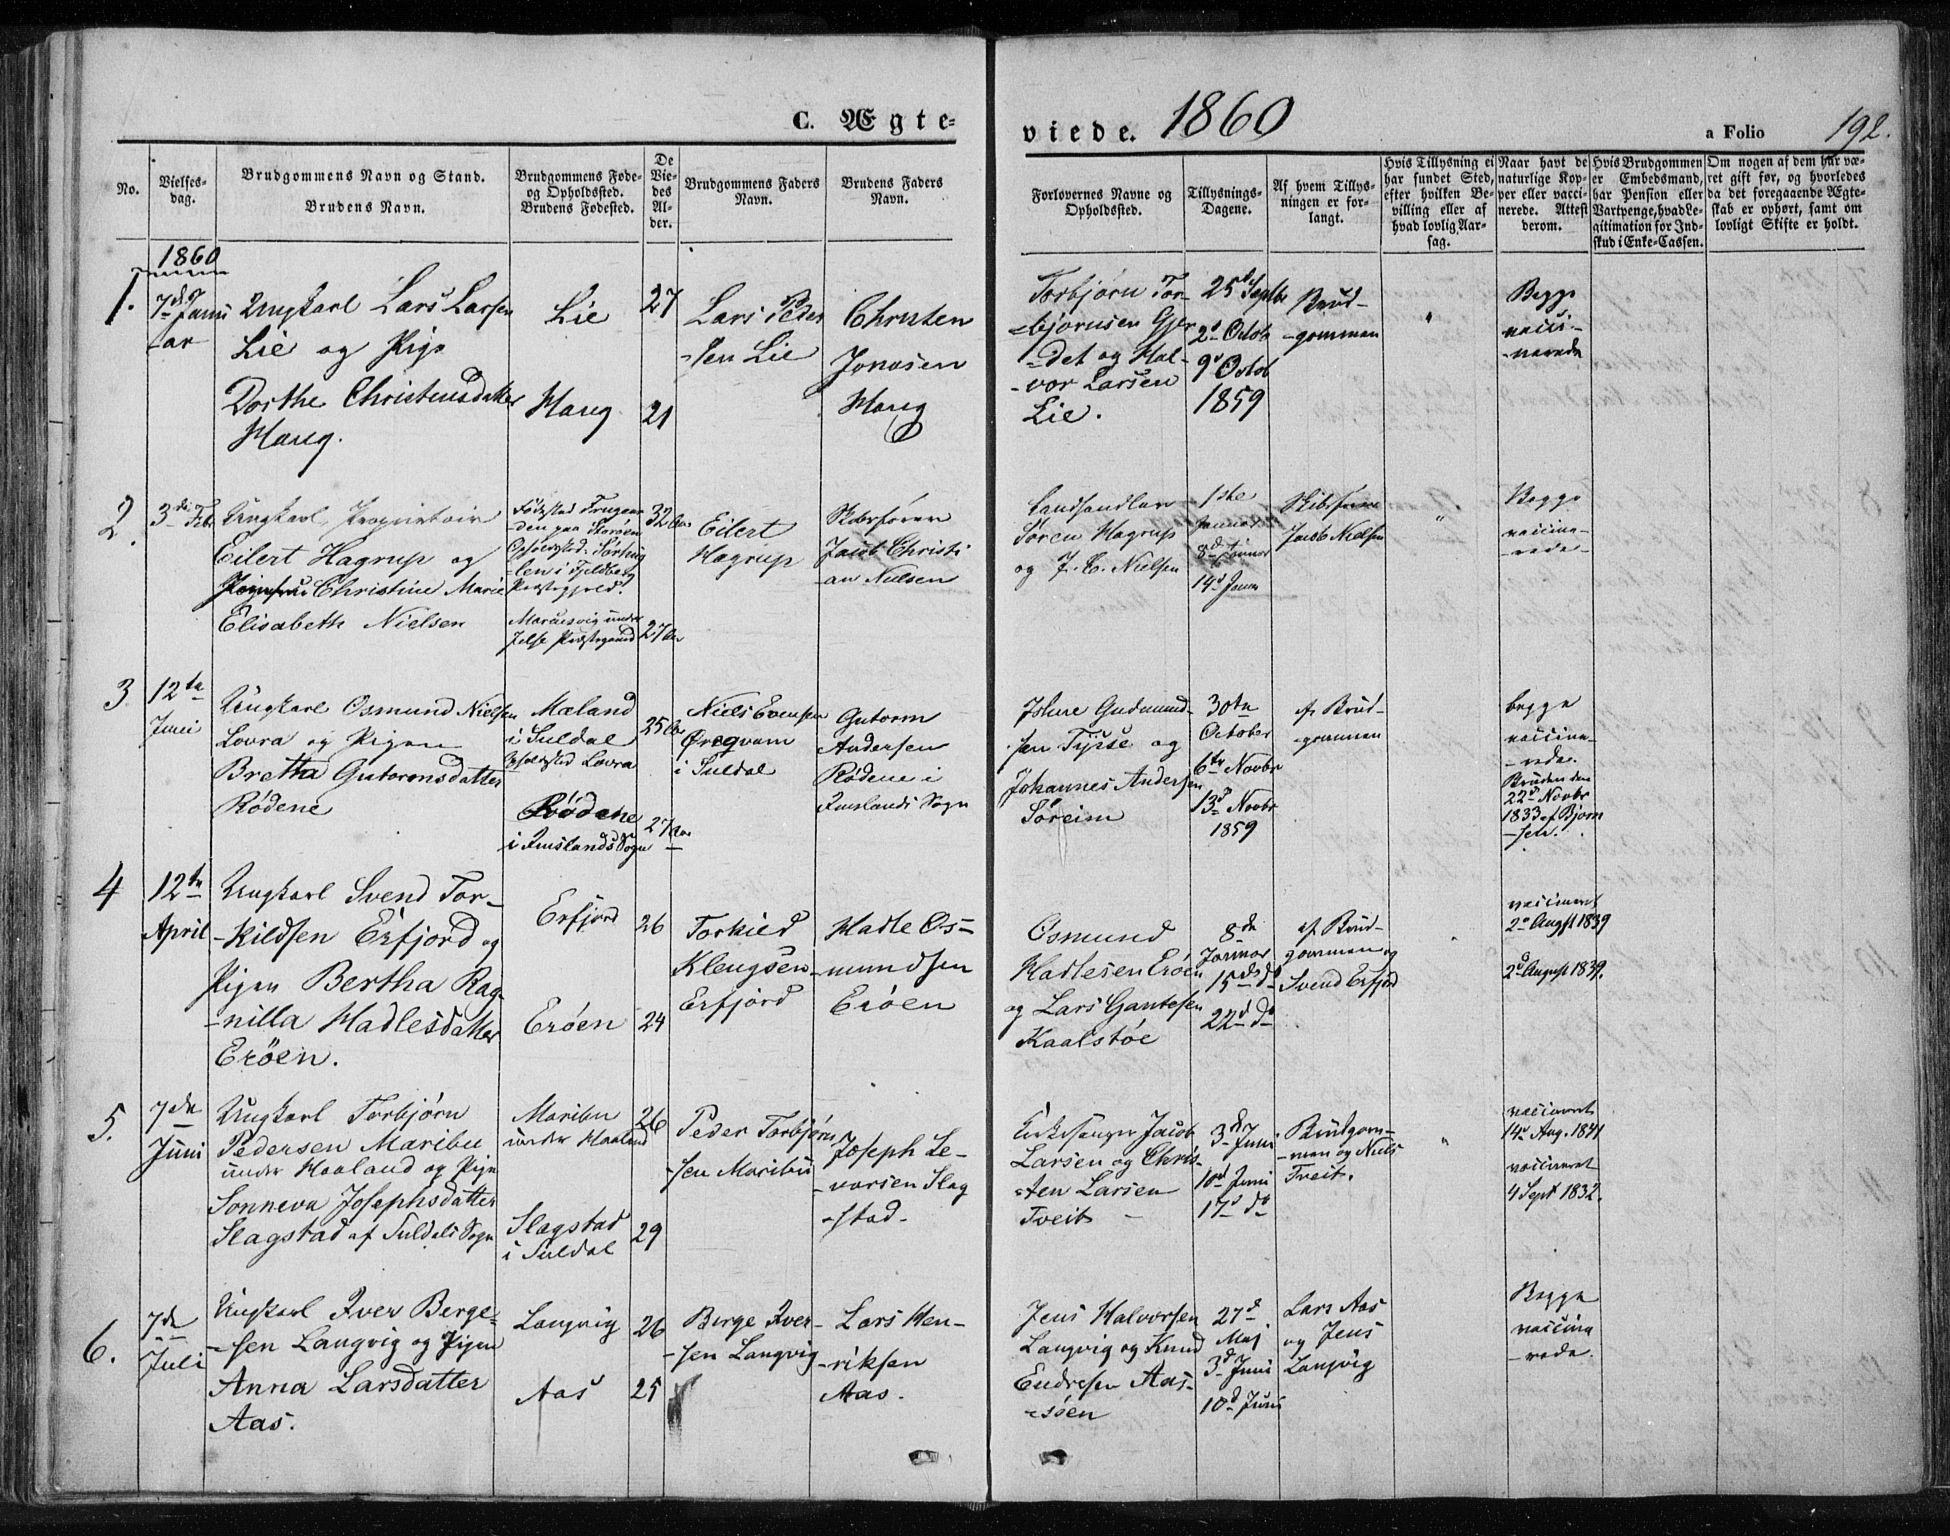 C. Ægte-
viede. 1860
a Folio 192.
No.
Vielses-
dag.
Brudgommens Navn og Stand.
Brudens Navn.
Brudgommens Føde-
og Opholdssted.
Brudens Fødested.
De
Vie-
des
Al-
der.
Brudgommens Faders
Navn.
Brudens Faders
Navn.
Forlovernes Navne og
Opholdssted.
Tillysnings-
Dagene.
Af hvem Tillys-
ningen er for-
langt.
Hvis Tillysning ei
har fundet Sted,
efter hvilken Be-
villing eller af
hvad lovlig Aar-
sag.
Naar havt de
naturlige Kop-
per eller vacci-
nerede. Attest
derom.
Hvis Brudgommen
er Embedsmand,
har Pension eller
Vartpenge, hvad Le-
gitimation for Ind-
skud i Enke-Cassen.
Om nogen af dem har væ-
ret gift før, og hvorledes
da det foregaaende Ægte-
skab er ophørt, samt om
lovligt Skifte er holdt.
1860
1.
7de Janu
-ar
Ungkarl Lars Larsen
Lie og Pige
Dorthe Christensdatter
Haug.
Lie
Haug
27
21
Lars Peder
-sen Lie
Christen
Jonasen
Haug
Torbjørn Tor-
-bjørnsen Gjer
-det og Hal-
-vor Larsen
Lie.
25d Septbr
2d Octob
9d Octob
1859
Brud-
-gommen
"
Begge
vacci-
-nerede
2.
3die Febr
Ungkarl, Proprietair
Eilert Hagrup og
Jomfru Christine Marie
Elisabeth Nielsen
Fødested
-den paa Storøen
Opholdssted
-len i Fjeldberg
Præstegjeld.
Marvigsvig under
Jelse Præstegjeld
32 Aar
27 Aar
Eilert
Hagrup
Skibsfører
Jacob Christi
-an Nielsen
Landhandler
Søren Hagrup
og J. C. Nielsen
1ste
Januar
8d Januar
14d Januar
Skibsfører
Jacob Nielsen
"
Begge
vaccine-
-rede-
3
12te
Juni
Ungkarl Osmund Nielsen
Lovra og Pigen
Bretta Gutormsdatter
Rødene
Mæland
i Suldal
Opholdssted Lovra
Rødene
i Imslands Sogn
25 Aar
27 Aar
Niels Evensen
i Suldal
Gutorm
Andersen
Rødene i
Imslands Sogn
Gudmund-
-sen Tysse og
Johannes Andersen
Søreim
30te
October
6te Novbr
13d Novbr
1859
af Brud-
-gommen
begge
vaccine-
-rede.
Bruden den
22d Novbr
1833 af Bjørn
-sen.
4
12te
April
Ungkarl Svend Tor-
-kildsen Erfjord og
Pigen Bertha Rag-
-nilla Hadlesdatter
Erøen.
Erfjord
Erøen
26
24
Torkild
Klengsen
Erfjord
Hadle Os-
-mundsen
Erøen
Osmund
Hadlesen Erøen
og Lars Gautesen
Kaalstøe
8de
Januar
15de do
22d do
af Brud-
gommen og
Svend Erfjord
vaccineret
2d Augst 1839
2d August 1839.
5.
7de
Juni
Ungkarl Torbjørn
Pedersen Maribu
under Haaland og Pigen
Sonneva Josephsdatter
Slagstad af Suldals Sogn
Maribu
under Haaland
Slagstad
i Suldal
26
29
Peder Torbjørn
-sen Maribu
Joseph Le-
-varsen Slag
-stad-
Kirkesanger Jacob
Larsen og Chris-
-ten Larsen
Tveit-
3d Juni
10d Juni
17d do
Brudgom-
-men og Niels
Tveit.
"
vaccineret
14d Aug. 1841
vaccineret
4 Sept 1832.
6.
7de
Juli
Ungkarl Iver Berge-
-sen Langvig og Pigen
Anna Larsdatter
Aas.
Langvig
Aas
26
25
Berge Iver-
-sen Langvig
Lars Hen-
-riksen
Aas.
Jens Halvorsen
Langvig og Knud
Endresen Aas-
-søen
27d
Maj
3d Juni
10d Juni
Lars Aas
og Jens
Langvig
Begge
vaccine
-rede.